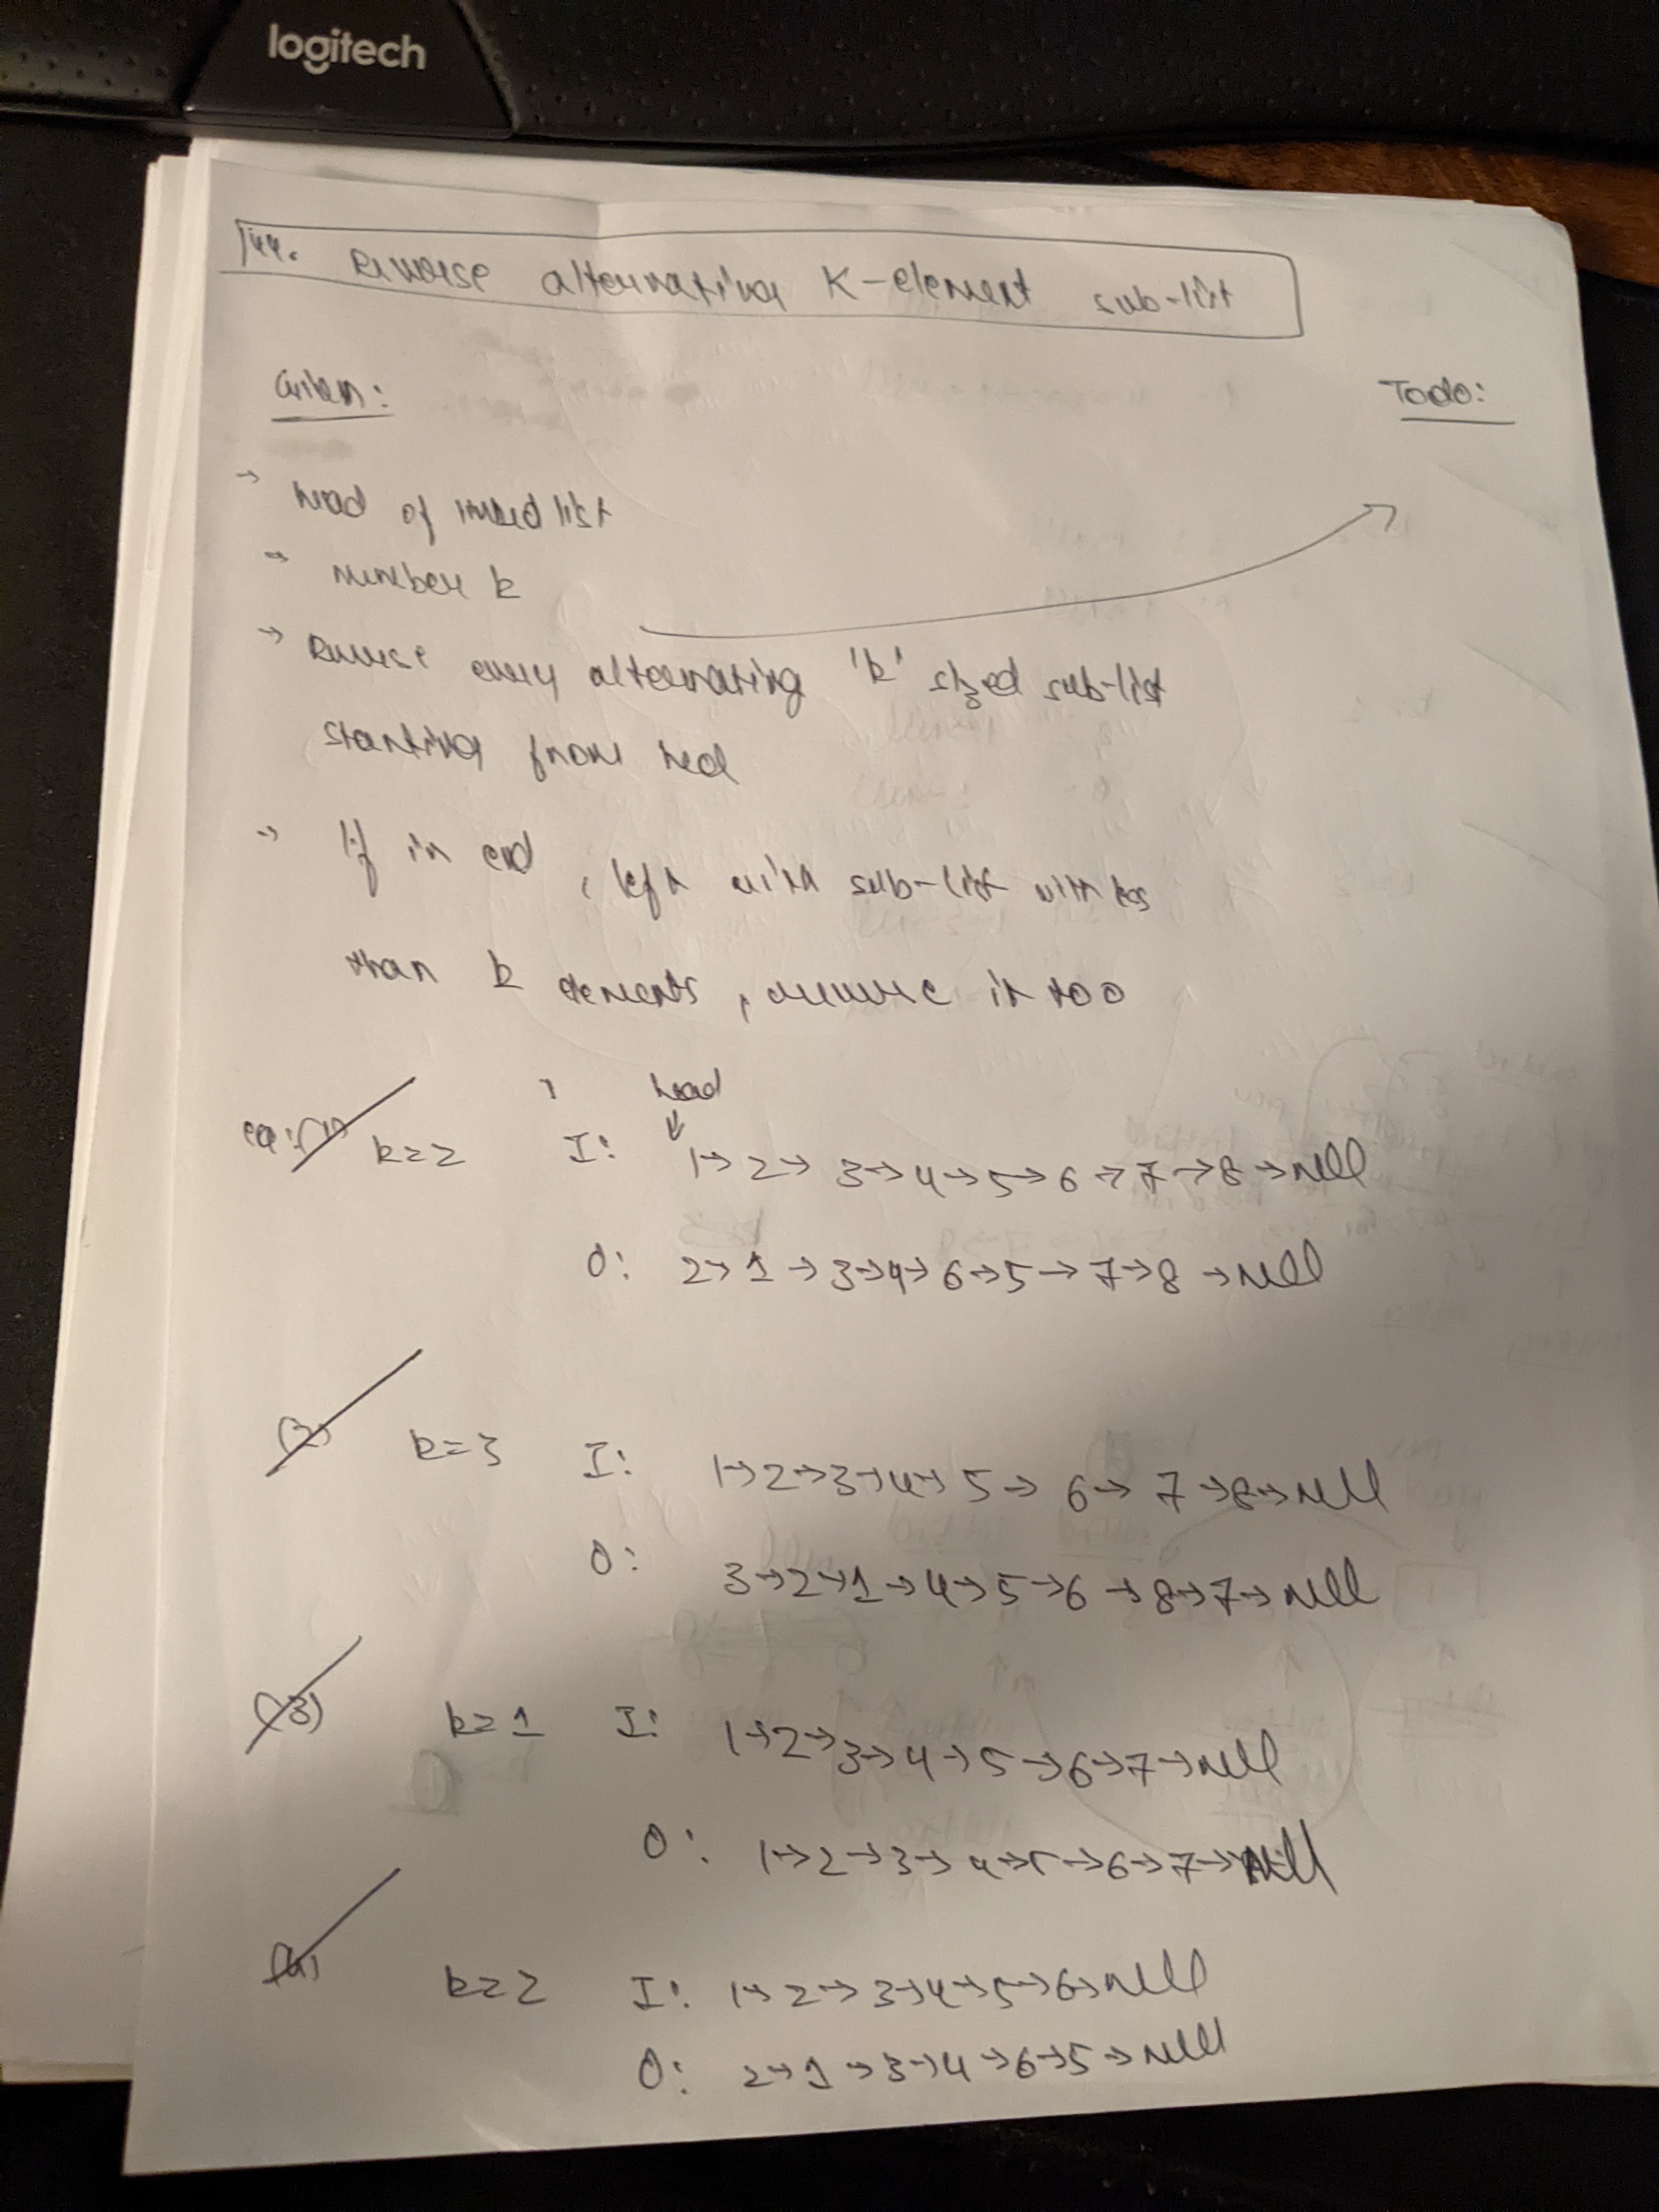 logitech
144. Reverse alternating K-element sub-list
Given:
Todo:
→ head of linked list
→ number k
→ Reverse every alternating 'k' sized sub-list
starting from hed
→ If in end, left with sub-list with less
than k elements, reverse it too
head
eg:(1) k=2 I: 1→2→3→4→5→6→7→8→null
O: 2→1→3→4→6→5→7→8→null
(2) k=3 I: 1→2→3→4→5→6→7→8→null
O: 3→2→1→4→5→6→8→7→null
(3) k=1 I: 1→2→3→4→5→6→7→null
O: 1→2→3→4→5→6→7→null
(4) k=2 I: 1→2→3→4→5→6→null
O: 2→1→3→4→6→5→null